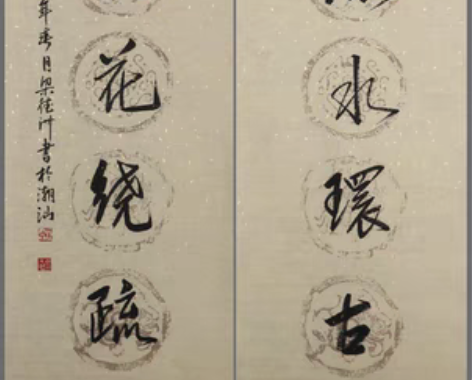 水環古
花绕疏
年春月梁書於潮汕